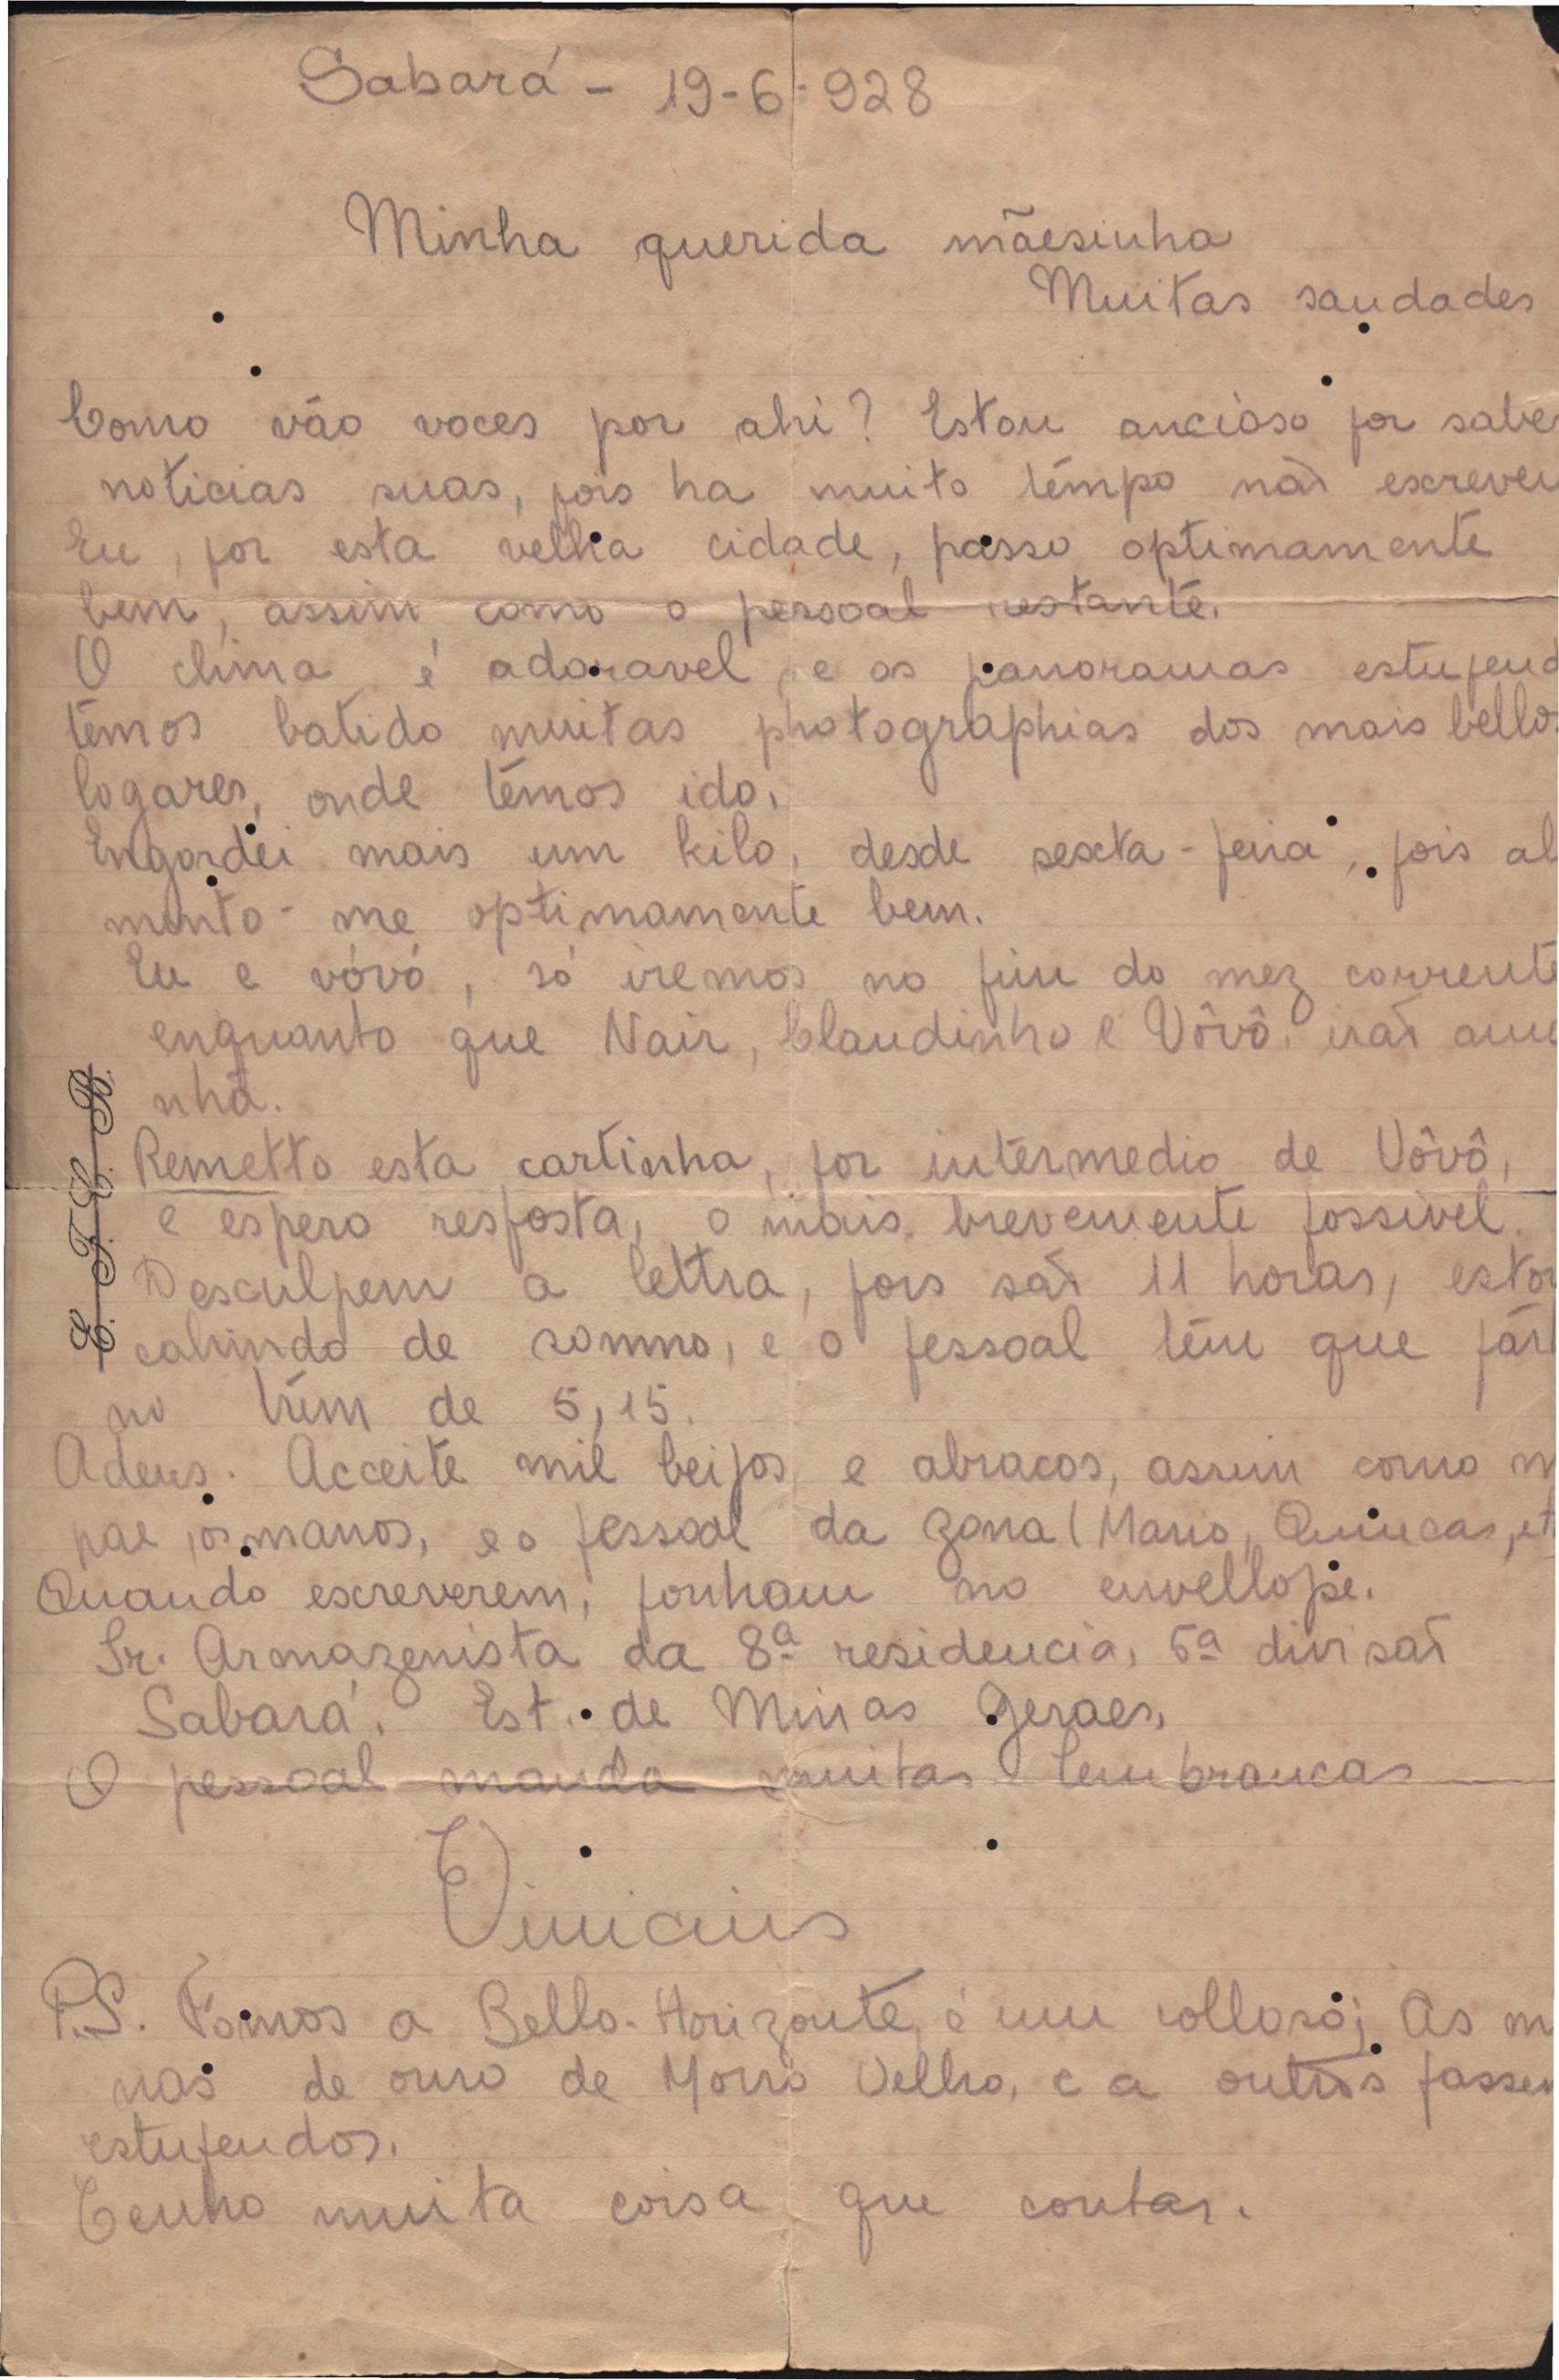 Sabará - 19-6-928
Minha querida mãesinha
Muitas saudades
Como vão voces por ahi? Estou ancioso por sabe
noticias suas, pois ha muito tempo não escreveu
Eu, por esta velha cidade, passo optimamente
bem, assim como o pessoal restante.
O clima é adoravel, e os panoramas estupend
temos batido muitas photographias dos mais bellos
logares, onde temos ido.
Engordei mais um kilo, desde sexta-feira, pois al
mento-me optimamente bem.
Eu e vóvó, só iremos no fim do mez corrente
enquanto que Nair, Claudinho e Vôvô, irão ama
nhã.
Remetto esta cartinha, por intermedio de Vôvô,
e espero resposta, o mais brevemente possivel.
Desculpem a lettra, pois são 11 horas, estou
cahindo de somno, e o pessoal tem que part
no trem de 5,15.
Adeus. Acceite mil beijos e abracos, assim como m
pae, os manos, e o pessoal da zona (Mario, Quincas, et
Quando escreverem, ponham no envellope.
Sr. Armazenista da 8ª residencia, 5ª divisão
Sabará. Est. de Minas Geraes.
O pessoal manda muitas lembrancas
Vinicius
P.S. Fomos a Bello-Horizonte, é um colloso; As m
nas de ouro de Morro Velho, e a outros passe
estupendos.
Tenho muita coisa que contar.
E. F. C. B.